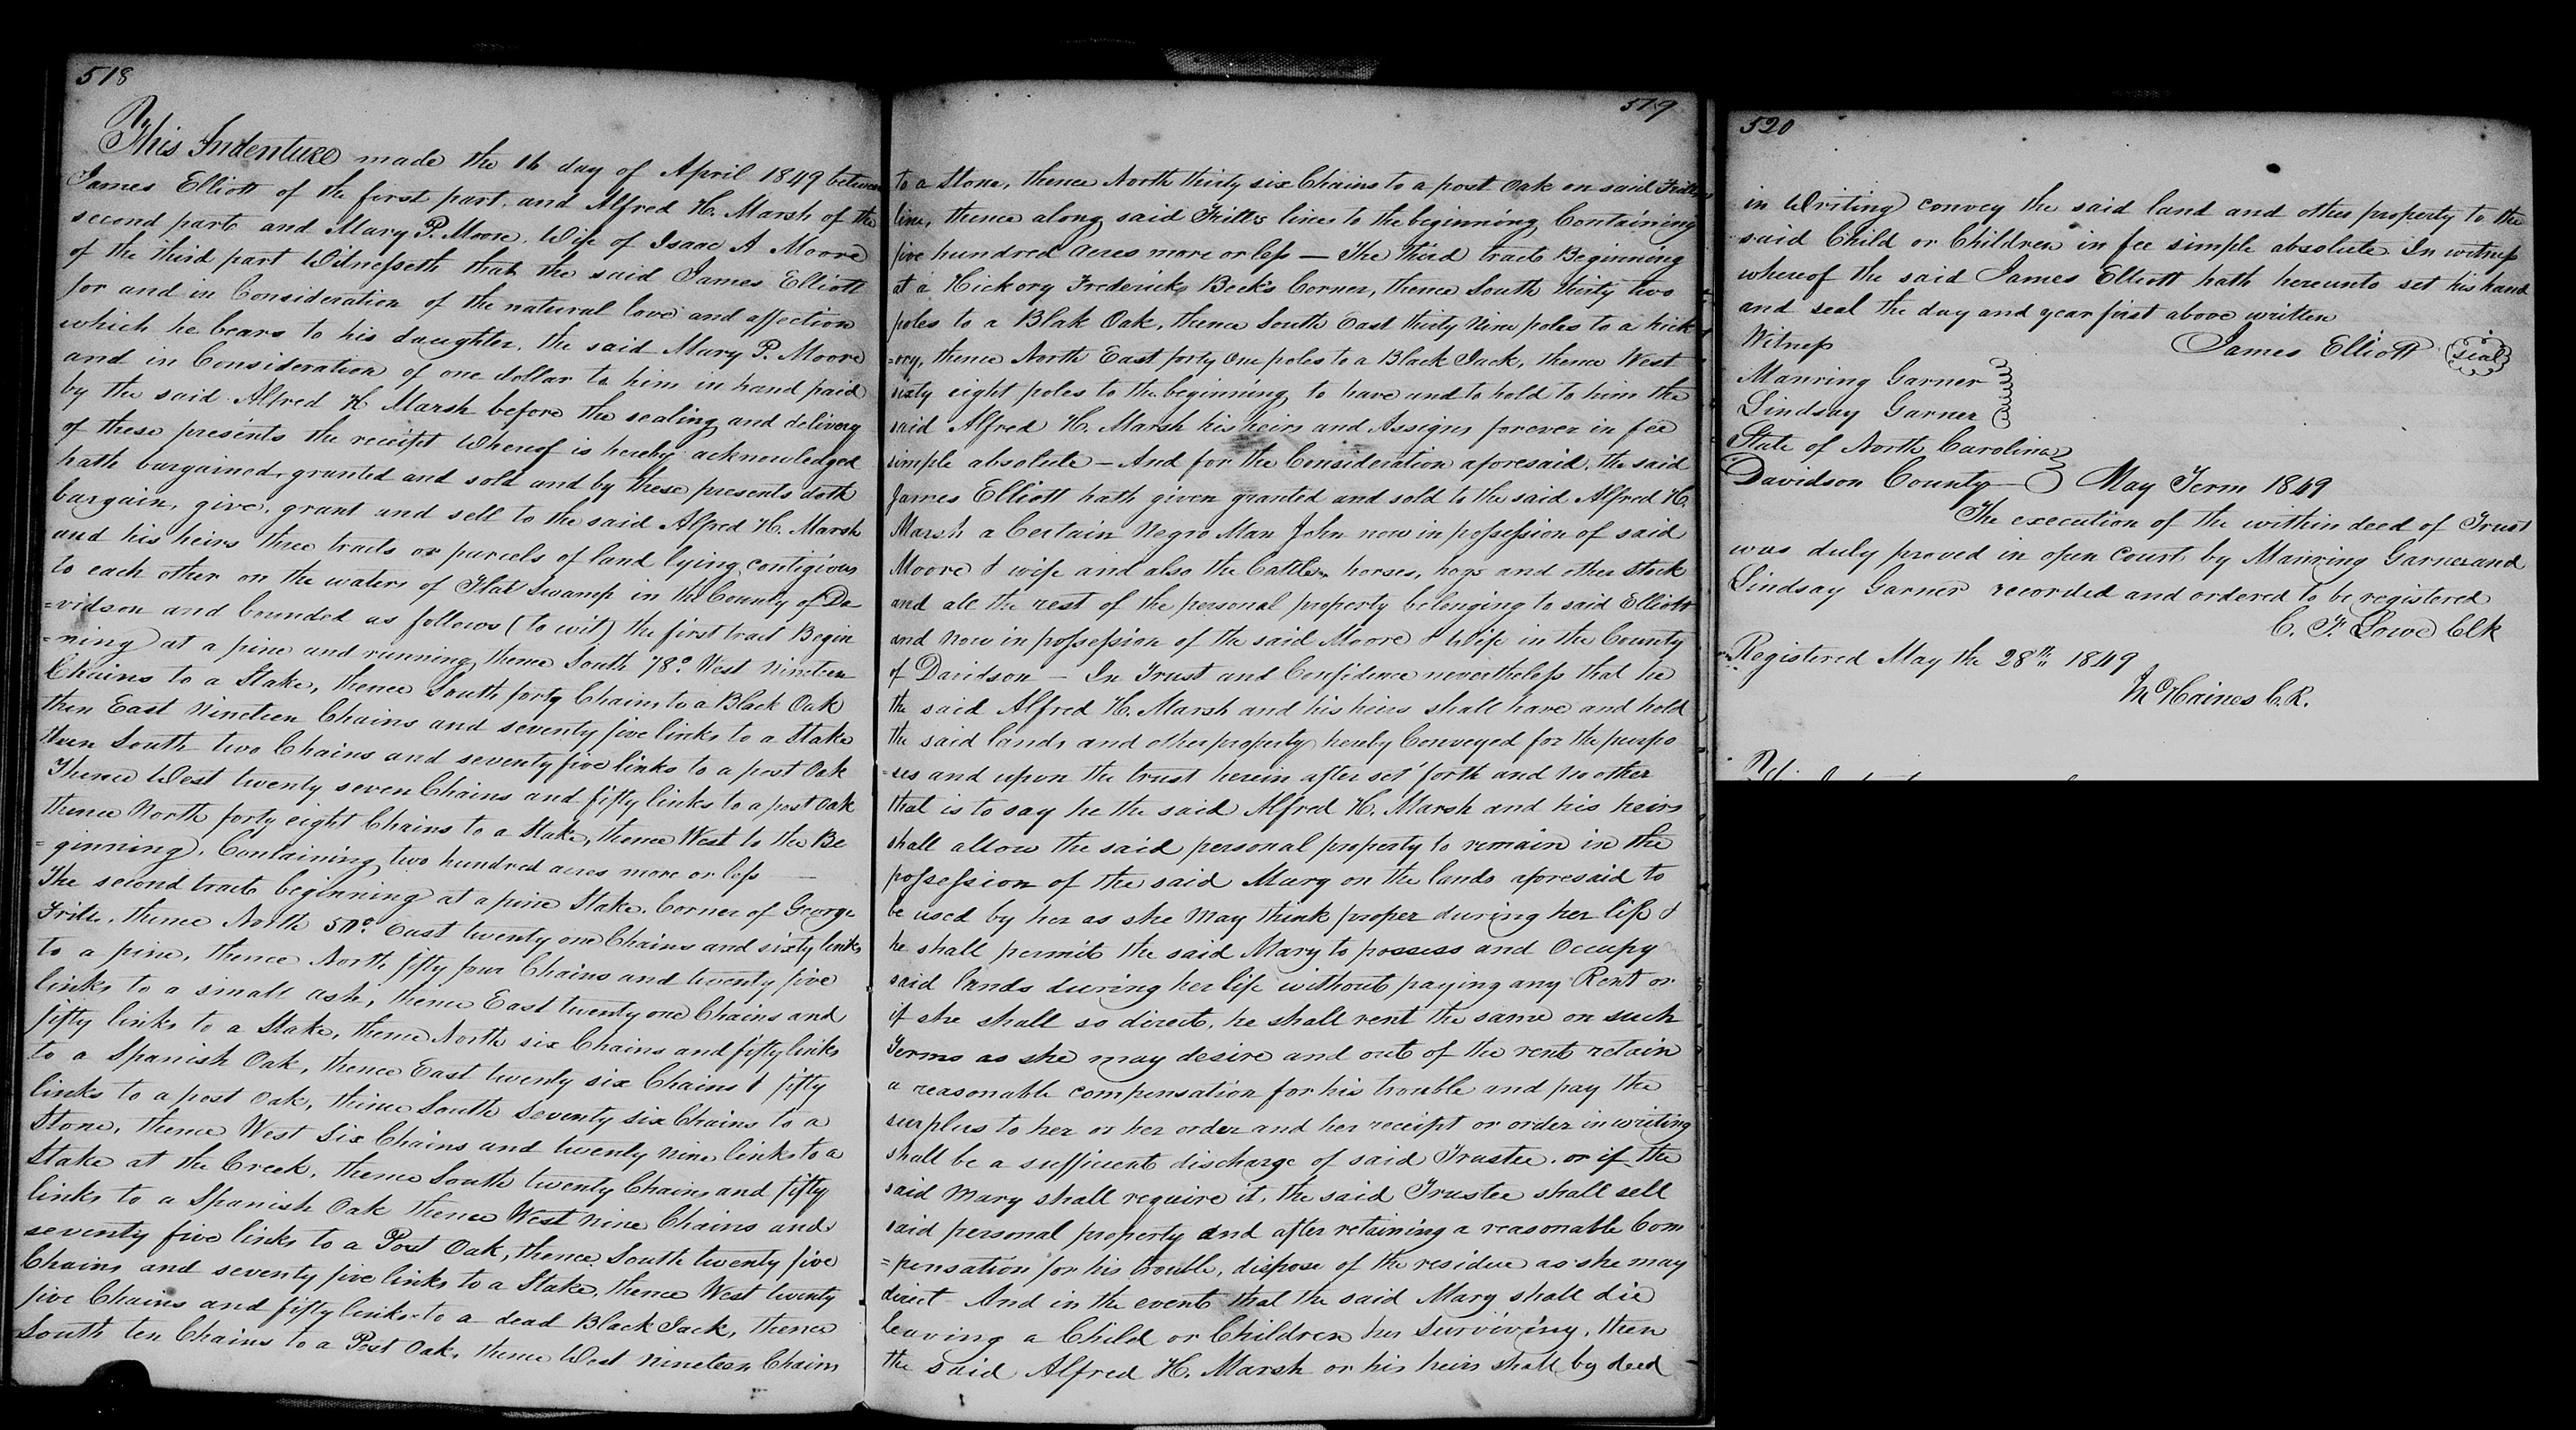 518
This Indenture made the 16 day of April 1849 between
James Elliott of the first part, and Alfred H. Marsh of the
second part and Mary P. Moore, Wife of Isaac A Moore
of the third part Witnesseth that the said James Elliott
for and in Consideration of the natural love and affection
which he bears to his daughter, the said Mary P. Moore
and in Consideration of one dollar to him in hand paid
by the said Alfred H Marsh before the sealing and delivery
of these presents the receipt Whereof is hereby acknowledged
hath bargained, granted and sold and by these presents doth
bargain, give, grant and sell to the said Alfred H. Marsh
and his heirs three tracts or parcels of land lying contigious
to each other on the waters of Flat Swamp in the County of Da
=vidson and bounded as follows (to wit) the first tract Begin
=ning at a pine and running thence South 78° West nineteen
Chains to a Stake, thence South forty Chains to a Black Oak
then East Nineteen Chains and seventy five links to a Stake
then South two Chains and seventy five links to a post Oak
Thence West twenty seven Chains and fifty links to a post oak
thence North forty eight Chains to a Stake, thence West to the Be
=ginning, Containing two hundred acres more or less —
The second tract beginning at a pine Stake, Corner of George
thence North 50° East twenty one Chains and sixty links
to a pine, thence North fifty four Chains and twenty five
links to a small ash, thence East twenty one Chains and
fifty links to a Stake, thence North six Chains and fifty links
to a Spanish Oak, thence East twenty six Chains & fifty
links to a post Oak, thence South Seventy six Chains to a
Stone, thence West Six Chains and twenty nine links to a
Stake at the Creek, thence South twenty Chains and fifty
links to a Spanish Oak thence West nine Chains and
seventy five links to a Post Oak, thence South twenty five
Chains and seventy five links to a Stake, thence West twenty
five Chains and fifty links to a dead Black Jack, thence
South ten Chains to a Post Oak, thence West nineteen Chains
519
to a Stone, thence North thirty six Chains to a post Oak on said
line, thence along said Fritts line to the beginning Containing
five hundred acres more or less — The Third tract Beginning
at a Hickory Frederick Beck's Corner, thence South thirty two
poles to a Blak Oak, thence South East thirty Nine poles to a hick
=ory, thence North East forty One poles to a Black Jack, thence West
sixty eight poles to the beginning, to have and to hold to him the
said Alfred H. Marsh his heirs and Assigns forever in fee
simple absolute — And for the Consideration aforesaid, the said
James Elliott hath given granted and sold to the said Alfred H.
Marsh a Certain Negro Man John now in possession of said
Moore & wife and also the Cattle, horses, hogs and other stock
and all the rest of the personal property belonging to said Elliott
and now in possession of the said Moore & Wife in the County
of Davidson — In Trust and Confidence nevertheless that he
the said Alfred H. Marsh and his heirs shall have and hold
the said lands and other property hereby Conveyed for the purpo
=ses and upon the trust herein after set forth and no other
that is to say he the said Alfred H. Marsh and his heirs
shall allow the said personal property to remain in the
possession of the said Mary on the lands aforesaid to
be used by her as she may think proper during her life &
he shall permit the said Mary to possess and Occupy
said lands during her life without paying any Rent or
if she shall so direct, he shall rent the same on such
Terms as she may desire and out of the rent retain
a reasonable compensation for his trouble and pay the
surplus to her or her order and her receipt or order in writing
shall be a sufficient discharge of said Trustee. or if the
said Mary shall require it, the said Trustee shall sell
said personal property and after retaining a reasonable Com
=pensation for his trouble, dispose of the residue as she may
direct And in the event that the said Mary shall die
leaving a Child or Children her surviving, then
the said Alfred H. Marsh or his heirs shall by deed
520
in Writing convey the said land and other property to the
said Child or Children in fee simple absolute. In witness
whereof the said James Elliott hath hereunto set his hand
and seal the day and year first above written
Witness James Elliott (seal)
Manring Garner
Lindsay Garner
State of North Carolina
Davidson County May Term 1849
The execution of the within deed of Trust
was duly proved in open court by Manring Garner and
Lindsay Garner recorded and ordered to be registered
C. F. Lowe Clk
Registered May the 28th 1849
Haines C.R.